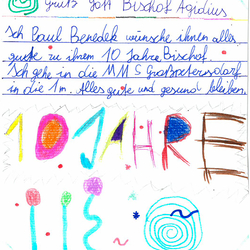 Grüß Gott Bischof Ägidius
Ich Paul Benedek wünsche ihnen alles
gute zu ihrem 10 Jahre Bischof.
Ich gehe in die MMS Großpetersdorf
in die 1m. Alles gute und gesund bleiben.
10 JAHRE